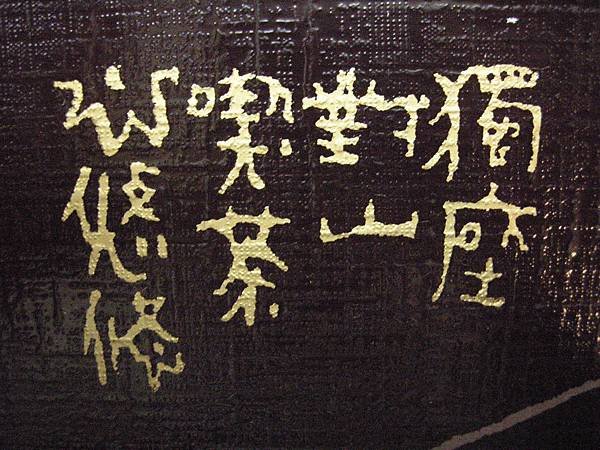 獨座
對山
喫茶
心悠悠